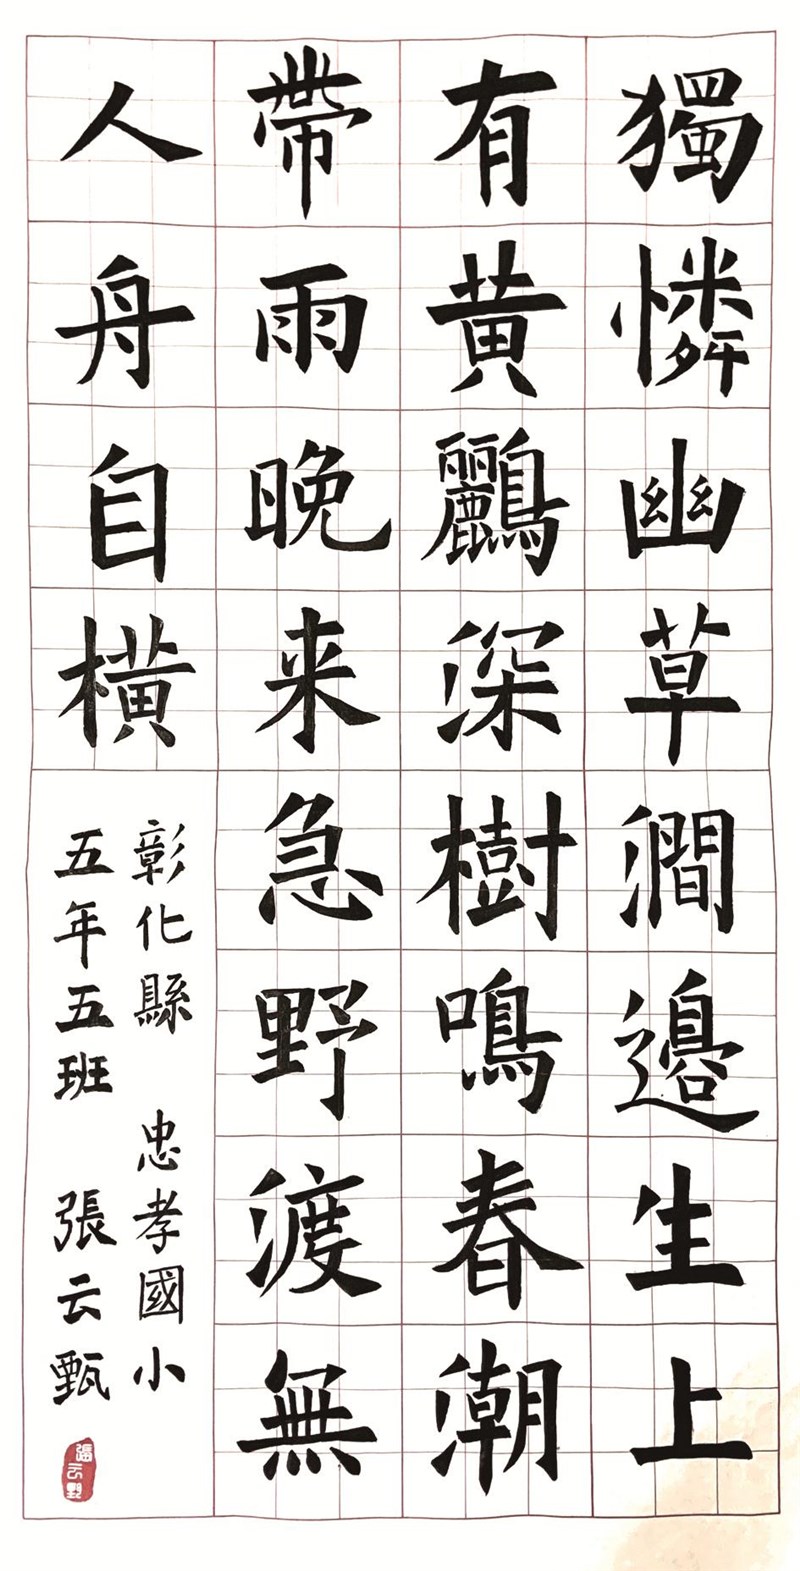 獨憐幽草澗邊生上
有黃鸝深樹鳴春潮
帶雨晚来急野渡無
人舟自橫
彰化縣 忠孝國小
五年五班 張云甄
張云甄